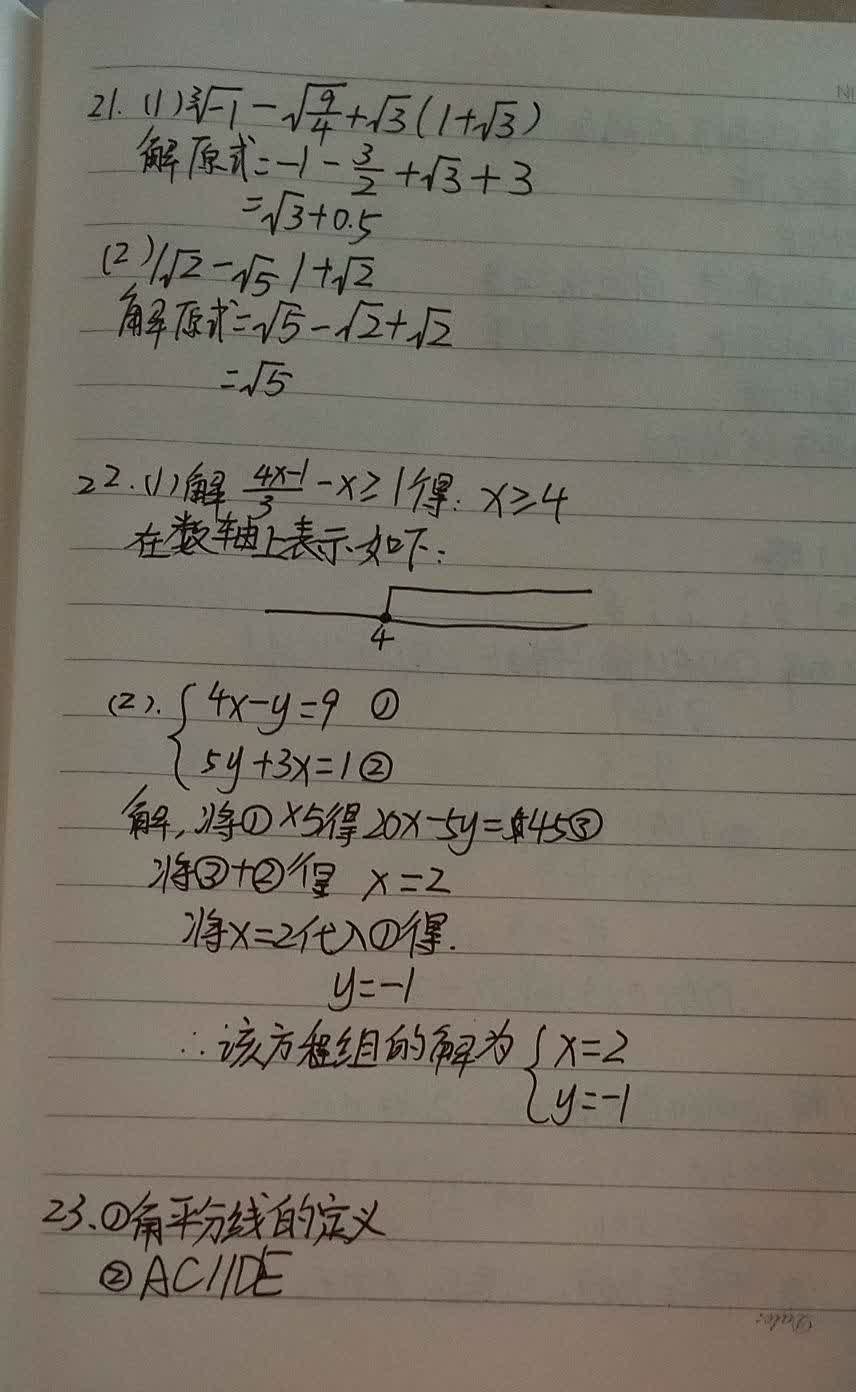 21. (1) ∛-1 - √(9/4) + √3(1+√3)
解原式=-1-3/2+√3+3
=√3+0.5
(2) |√2-√5|+√2
解原式=√5-√2+√2
=√5
22. (1)解 (4x-1)/3 -x≥1得: x≥4
在数轴上表示如下:
4
(2). { 4x-y=9 ①
5y+3x=1②
解,将①×5得20x-5y=45③
将③+②得 x=2
将x=2代入①得.
y=-1
∴该方程组的解为 { x=2
y=-1
23.①角平分线的定义
②AC//DE
Date: